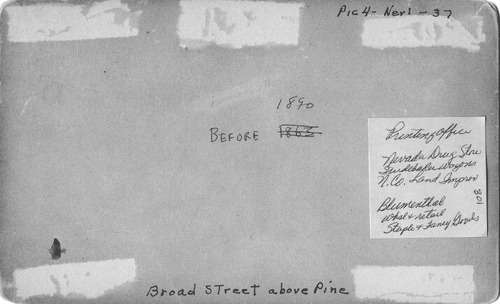 Pic4 - Nev1 - 37
1890
BEFORE 1863
Printing office
Nevada Drug Store
Studebaker wagons
N.Co. Land Improv
Blumenthal
whsl + retail
Staple & Fancy Goods
108
Broad Street above Pine